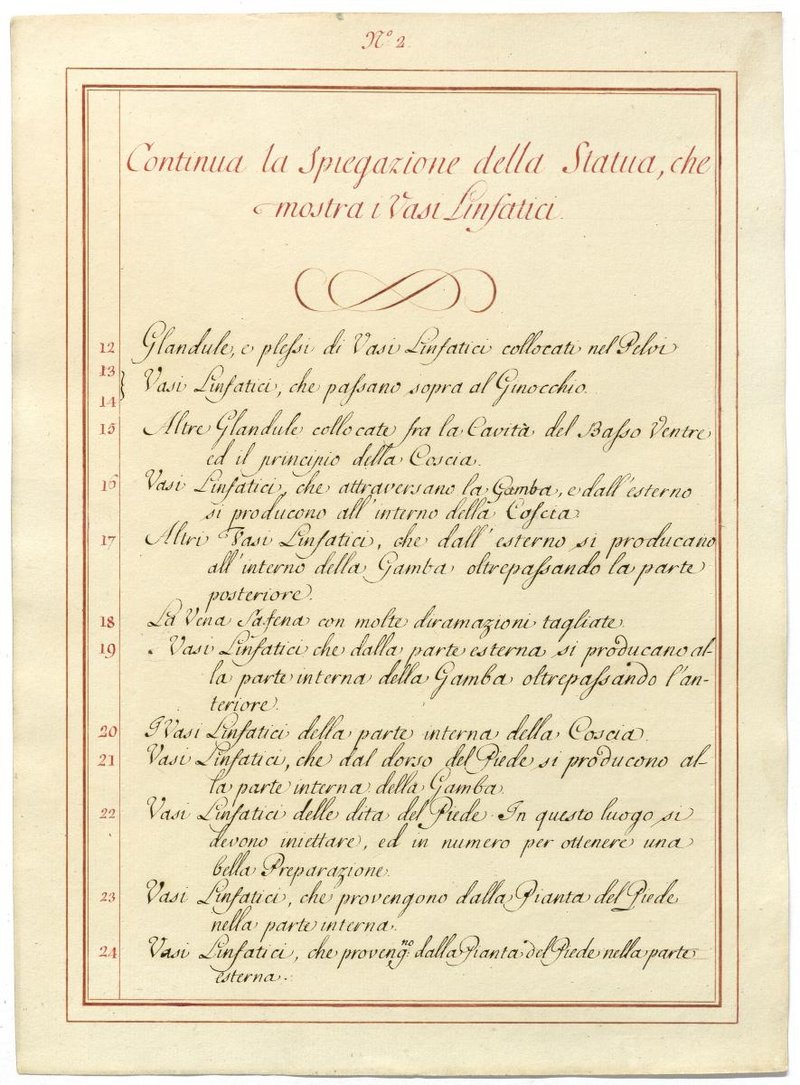 Nº 2
Continua la Spiegazione della Statua, che
mostra i Vasi Linfatici.
12 Glandule, e plessi di Vasi Linfatici collocati nel Pelvi
13
Vasi Linfatici, che passano sopra al Ginocchio.
14
15 Altre Glandule collocate fra la Cavità del Basso Ventre
ed il principio della Coscia.
16 Vasi Linfatici, che attraversano la Gamba, e dall'esterno
si producono all'interno della Coscia
17 Altri Vasi Linfatici, che dall'esterno si producano
all'interno della Gamba oltrepassando la parte
posteriore.
18 La Vena Safena con molte diramazioni tagliate.
19 I Vasi Linfatici che dalla parte esterna si producano al-
la parte interna della Gamba oltrepassando l'an-
teriore.
20 I Vasi Linfatici della parte interna della Coscia.
21 Vasi Linfatici, che dal dorso del Piede si producono al-
la parte interna della Gamba
22 Vasi Linfatici delle dita del Piede. In questo luogo si
devono iniettare, ed in numero per ottenere una
bella Preparazione.
23 Vasi Linfatici, che provengono dalla Pianta del Piede
nella parte interna.
24 Vasi Linfatici, che proveng.no dalla Pianta del Piede nella parte
esterna.